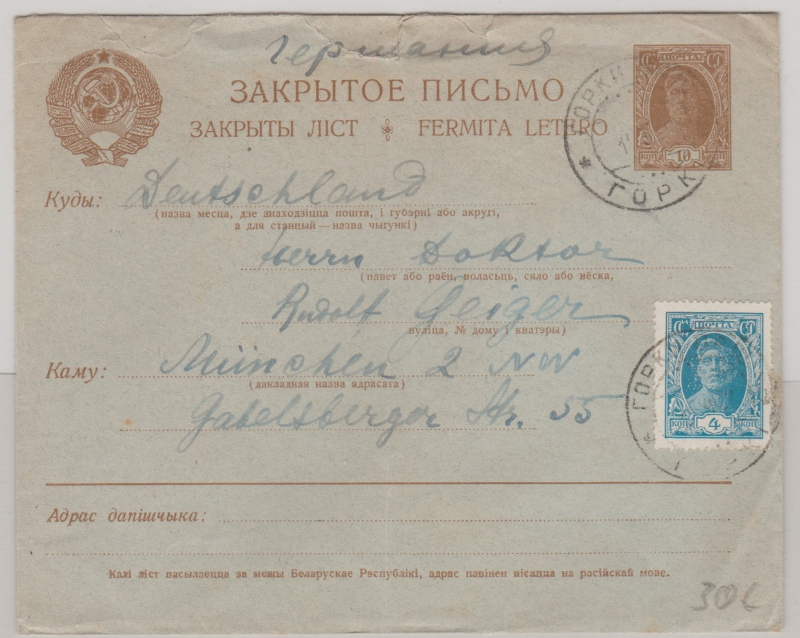 Германия
ЗАКРЫТОЕ ПИСЬМО
ЗАКРЫТЫ ЛІСТ FERMITA LETERO
ПОЧТА
10
КОП КОП
ГОРКИ
ГОРК
Куды: Deutschland
(назва месца, дзе знаходзіцца пошта, і губэрні або акругі,
а для станцый — назва чыгункі)
Herrn Doktor
(павет або раён, воласьць, сяло або вёска,
Rudolf Geiger
вуліца, № дому і кватэры)
Каму: München 2 NW
(дакладная назва адрасата)
Gabelsberger Str. 55
ПОЧТА
КОП 4 КОП
ГОРКИ
Адрас дапішчыка:
Калі ліст пасылаецца за межы Беларускае Рэспублікі, адрас павінен пісацца на расійскай мове.
30L